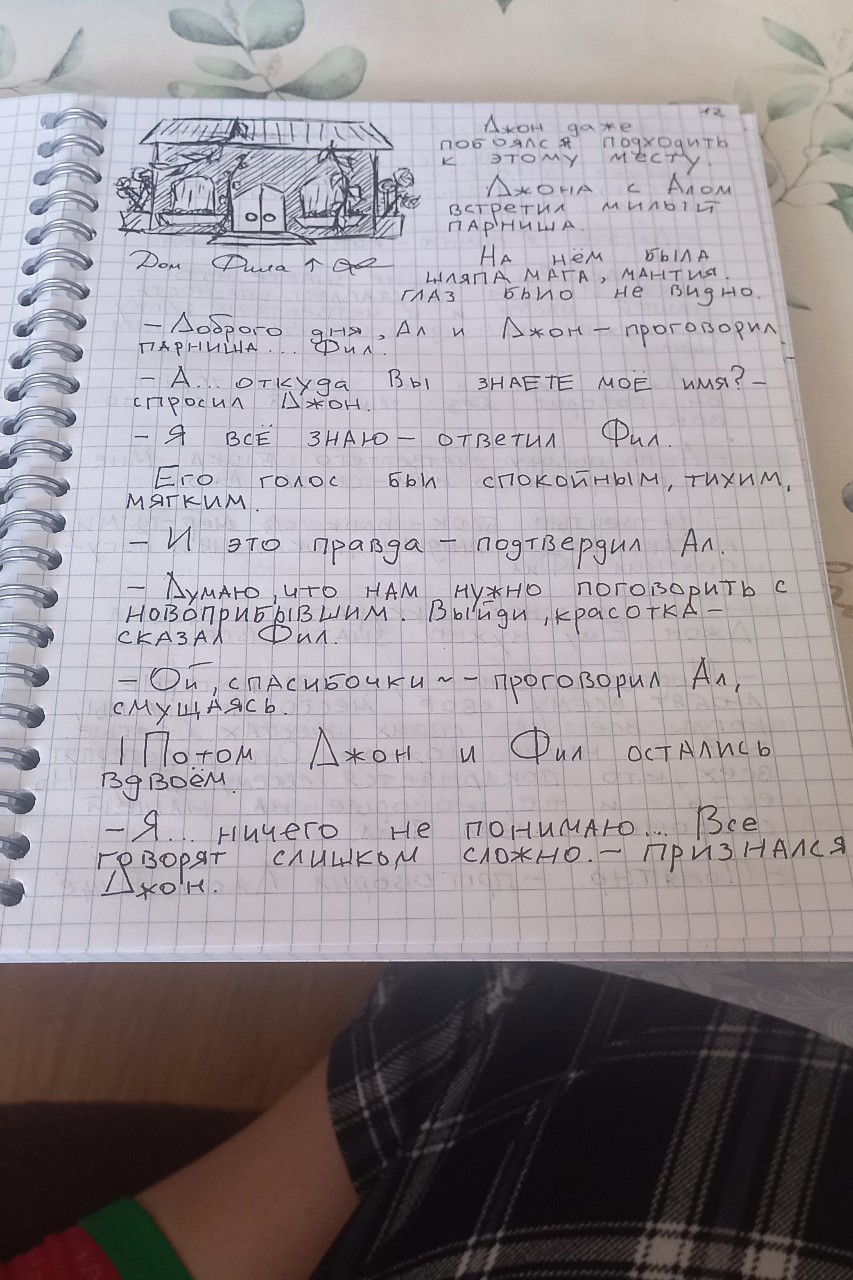 12
Джон даже
побоялся подходить
к этому месту.
Джона с Алом
встретил милый
парниша.
Дом Фила ↑
На нём была
шляпа мага, мантия.
Глаз было не видно.
– Доброго дня, Ал и Джон – проговорил
парниша... Фил.
– А... откуда Вы знаете моё имя? –
спросил Джон.
– Я всё знаю – ответил Фил.
Его голос был спокойным, тихим,
мягким.
– И это правда – подтвердил Ал.
– Думаю, что нам нужно поговорить с
новоприбывшим. Выйди, красотка –
сказал Фил.
– Ой, спасибочки ~ – проговорил Ал,
смущаясь.
Потом Джон и Фил остались
вдвоём.
– Я... ничего не понимаю... Все
говорят слишком сложно. – признался
Джон.